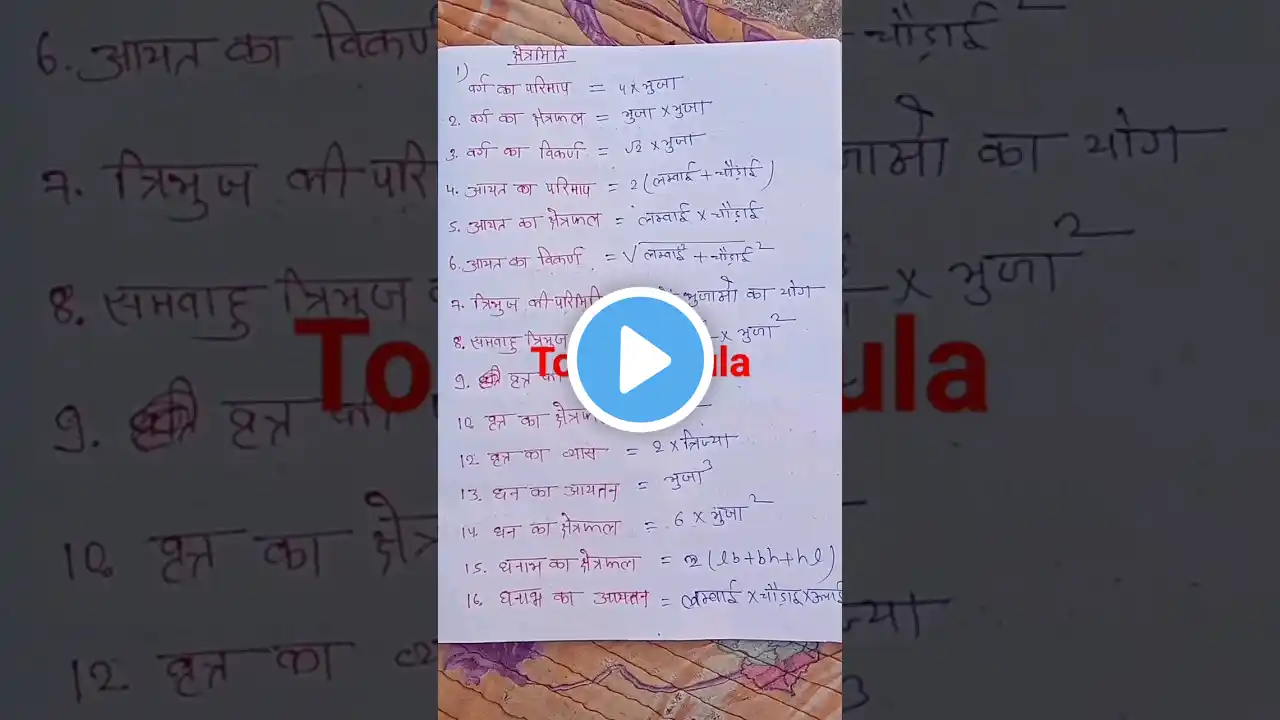 क्षेत्रमिति
1) वर्ग का परिमाप = 4 × भुजा
2. वर्ग का क्षेत्रफल = भुजा × भुजा
3. वर्ग का विकर्ण = √2 × भुजा
4. आयत का परिमाप = 2 (लम्बाई + चौड़ाई)
5. आयत का क्षेत्रफल = लम्बाई × चौड़ाई
6. आयत का विकर्ण = √लम्बाई² + चौड़ाई²
7. त्रिभुज की परिमिति भुजाओ का योग
8. समबाहु त्रिभुज × भुजा²
9. वृत्त की
10. वृत्त का
12. वृत्त का व्यास = 2 × त्रिज्या
13. धन का आयतन = भुजा³
14. धन का क्षेत्रफल = 6 × भुजा²
15. धनाभ का क्षेत्रफल = 2 (lb+bh+hl)
16. धनाभ का आयतन = लम्बाई × चौड़ाई ×
To ula